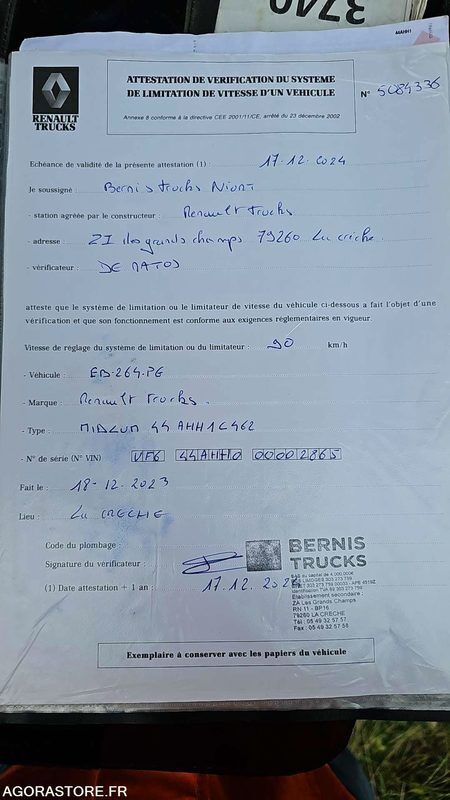 3740
RENAULT
TRUCKS
ATTESTATION DE VERIFICATION DU SYSTEME
DE LIMITATION DE VITESSE D'UN VEHICULE
N° 5084336
Annexe 8 conforme à la directive CEE 2001/11/CE, arrêté du 23 décembre 2002
Echéance de validité de la présente attestation (1) : 17.12.2024
Je soussigné : Bernis trucks Niort
- station agréée par le constructeur : Renault trucks
- adresse : ZI des grands champs 79260 La crèche.
- vérificateur : DE MATOS
atteste que le système de limitation ou le limiteur de vitesse du véhicule ci-dessous a fait l'objet d'une
vérification et que son fonctionnement est conforme aux exigences réglementaires en vigueur.
Vitesse de réglage du système de limitation ou du limitateur : 90 km/h
- Véhicule : EB-264-PG
- Marque : Renault trucks.
- Type : MIDLUM 44AHH1C462
- N° de série (N° VIN) VF6 44AHH0 00002865
Fait le : 18-12-2023
Lieu : La CRECHE
Code du plombage :
Signature du vérificateur :
(1) Date attestation + 1 an : 17.12.202
BERNIS
TRUCKS
SAS au capital de 4.000.000€
Etablissement secondaire :
ZA Les Grands Champs
RN 11 - BP16
79260 LA CRECHE
Tél : 05 49 32 57 57
Fax : 05 49 32 57 58
Exemplaire à conserver avec les papiers du véhicule
AGORASTORE.FR